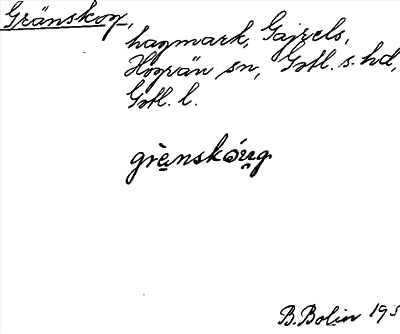 Gränskog,
hagmark, Gajrels,
Hogrän sn, Gotl. s. hd,
Gotl. l.
grènskóug
B. Bolin 193